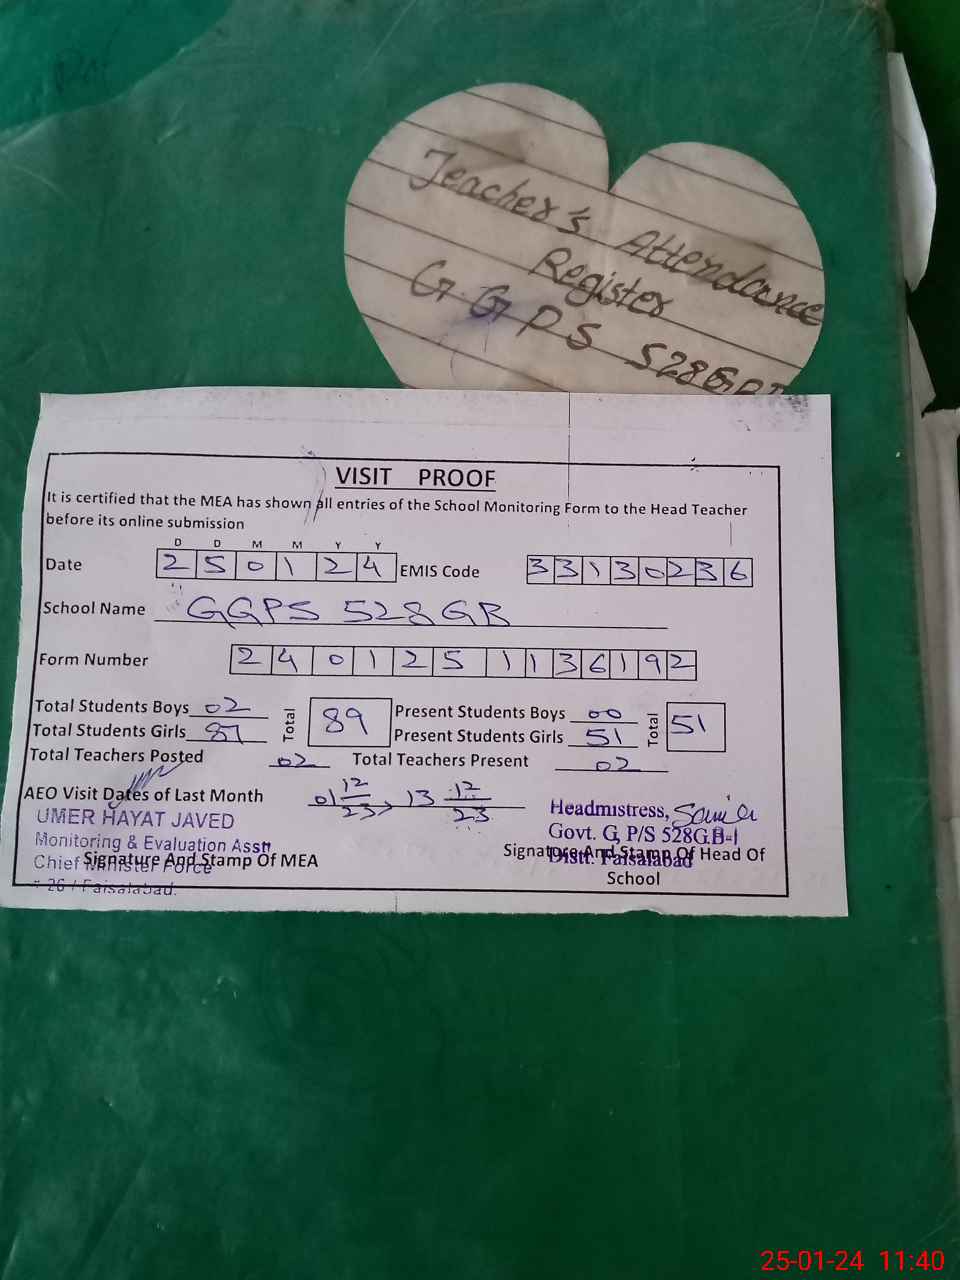 Teacher's Attendance
Register
G G P S 528GB
VISIT PROOF
It is certified that the MEA has shown all entries of the School Monitoring Form to the Head Teacher
before its online submission
D D M M Y Y
Date 2 5 0 1 2 4 EMIS Code 3 3 1 3 0 2 3 6
School Name GGPS 528 GB
Form Number 2 4 0 1 2 5 1 1 3 6 1 9 2
Total Students Boys 02 Total 89 Present Students Boys 00 Total 51
Total Students Girls 87 Present Students Girls 51
Total Teachers Posted 02 Total Teachers Present 02
AEO Visit Dates of Last Month 01 12/23, 13 12/23
UMER HAYAT JAVED
Monitoring & Evaluation Asstt
Chief Minister Force
Faisalabad.
Signature And Stamp Of MEA
Headmistress,
Govt. G, P/S 528G.B-I
Distt. Faisalabad
Signature And Stamp Of Head Of
School
25-01-24 11:40